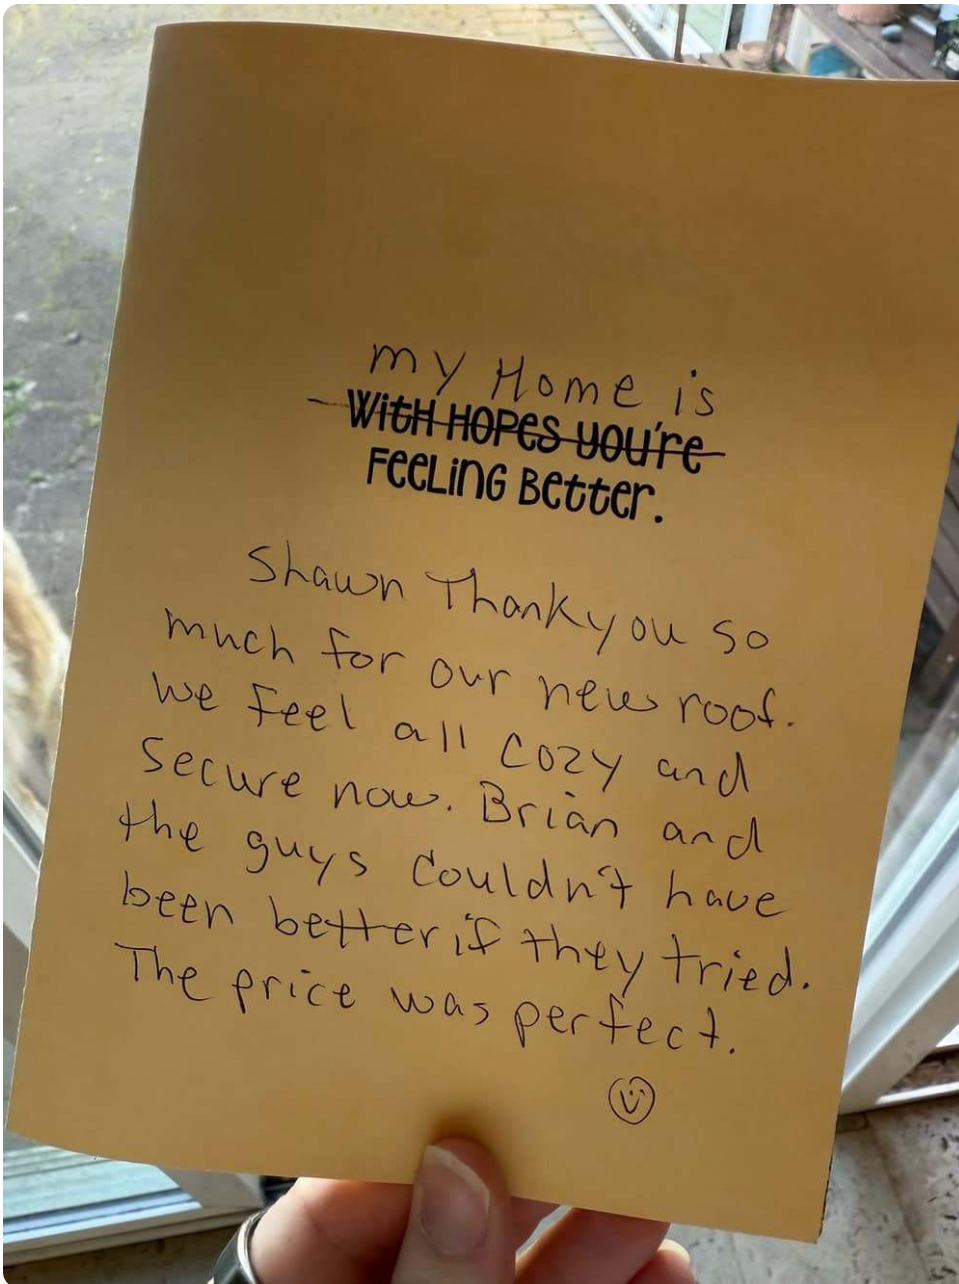 my Home is
With Hopes you're
Feeling Better.
Shawn Thankyou so
much for our new roof.
we feel all cozy and
secure now. Brian and
the guys couldn't have
been better if they tried.
The price was perfect.